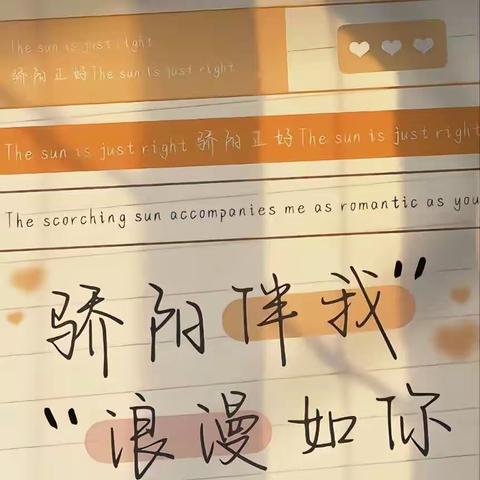 The sun is just right
骄阳正好The sun is just right
The sun is just right 骄阳正好The sun is just right
The scorching sun accompanies me as romantic as you
骄阳伴我"
"浪漫如你